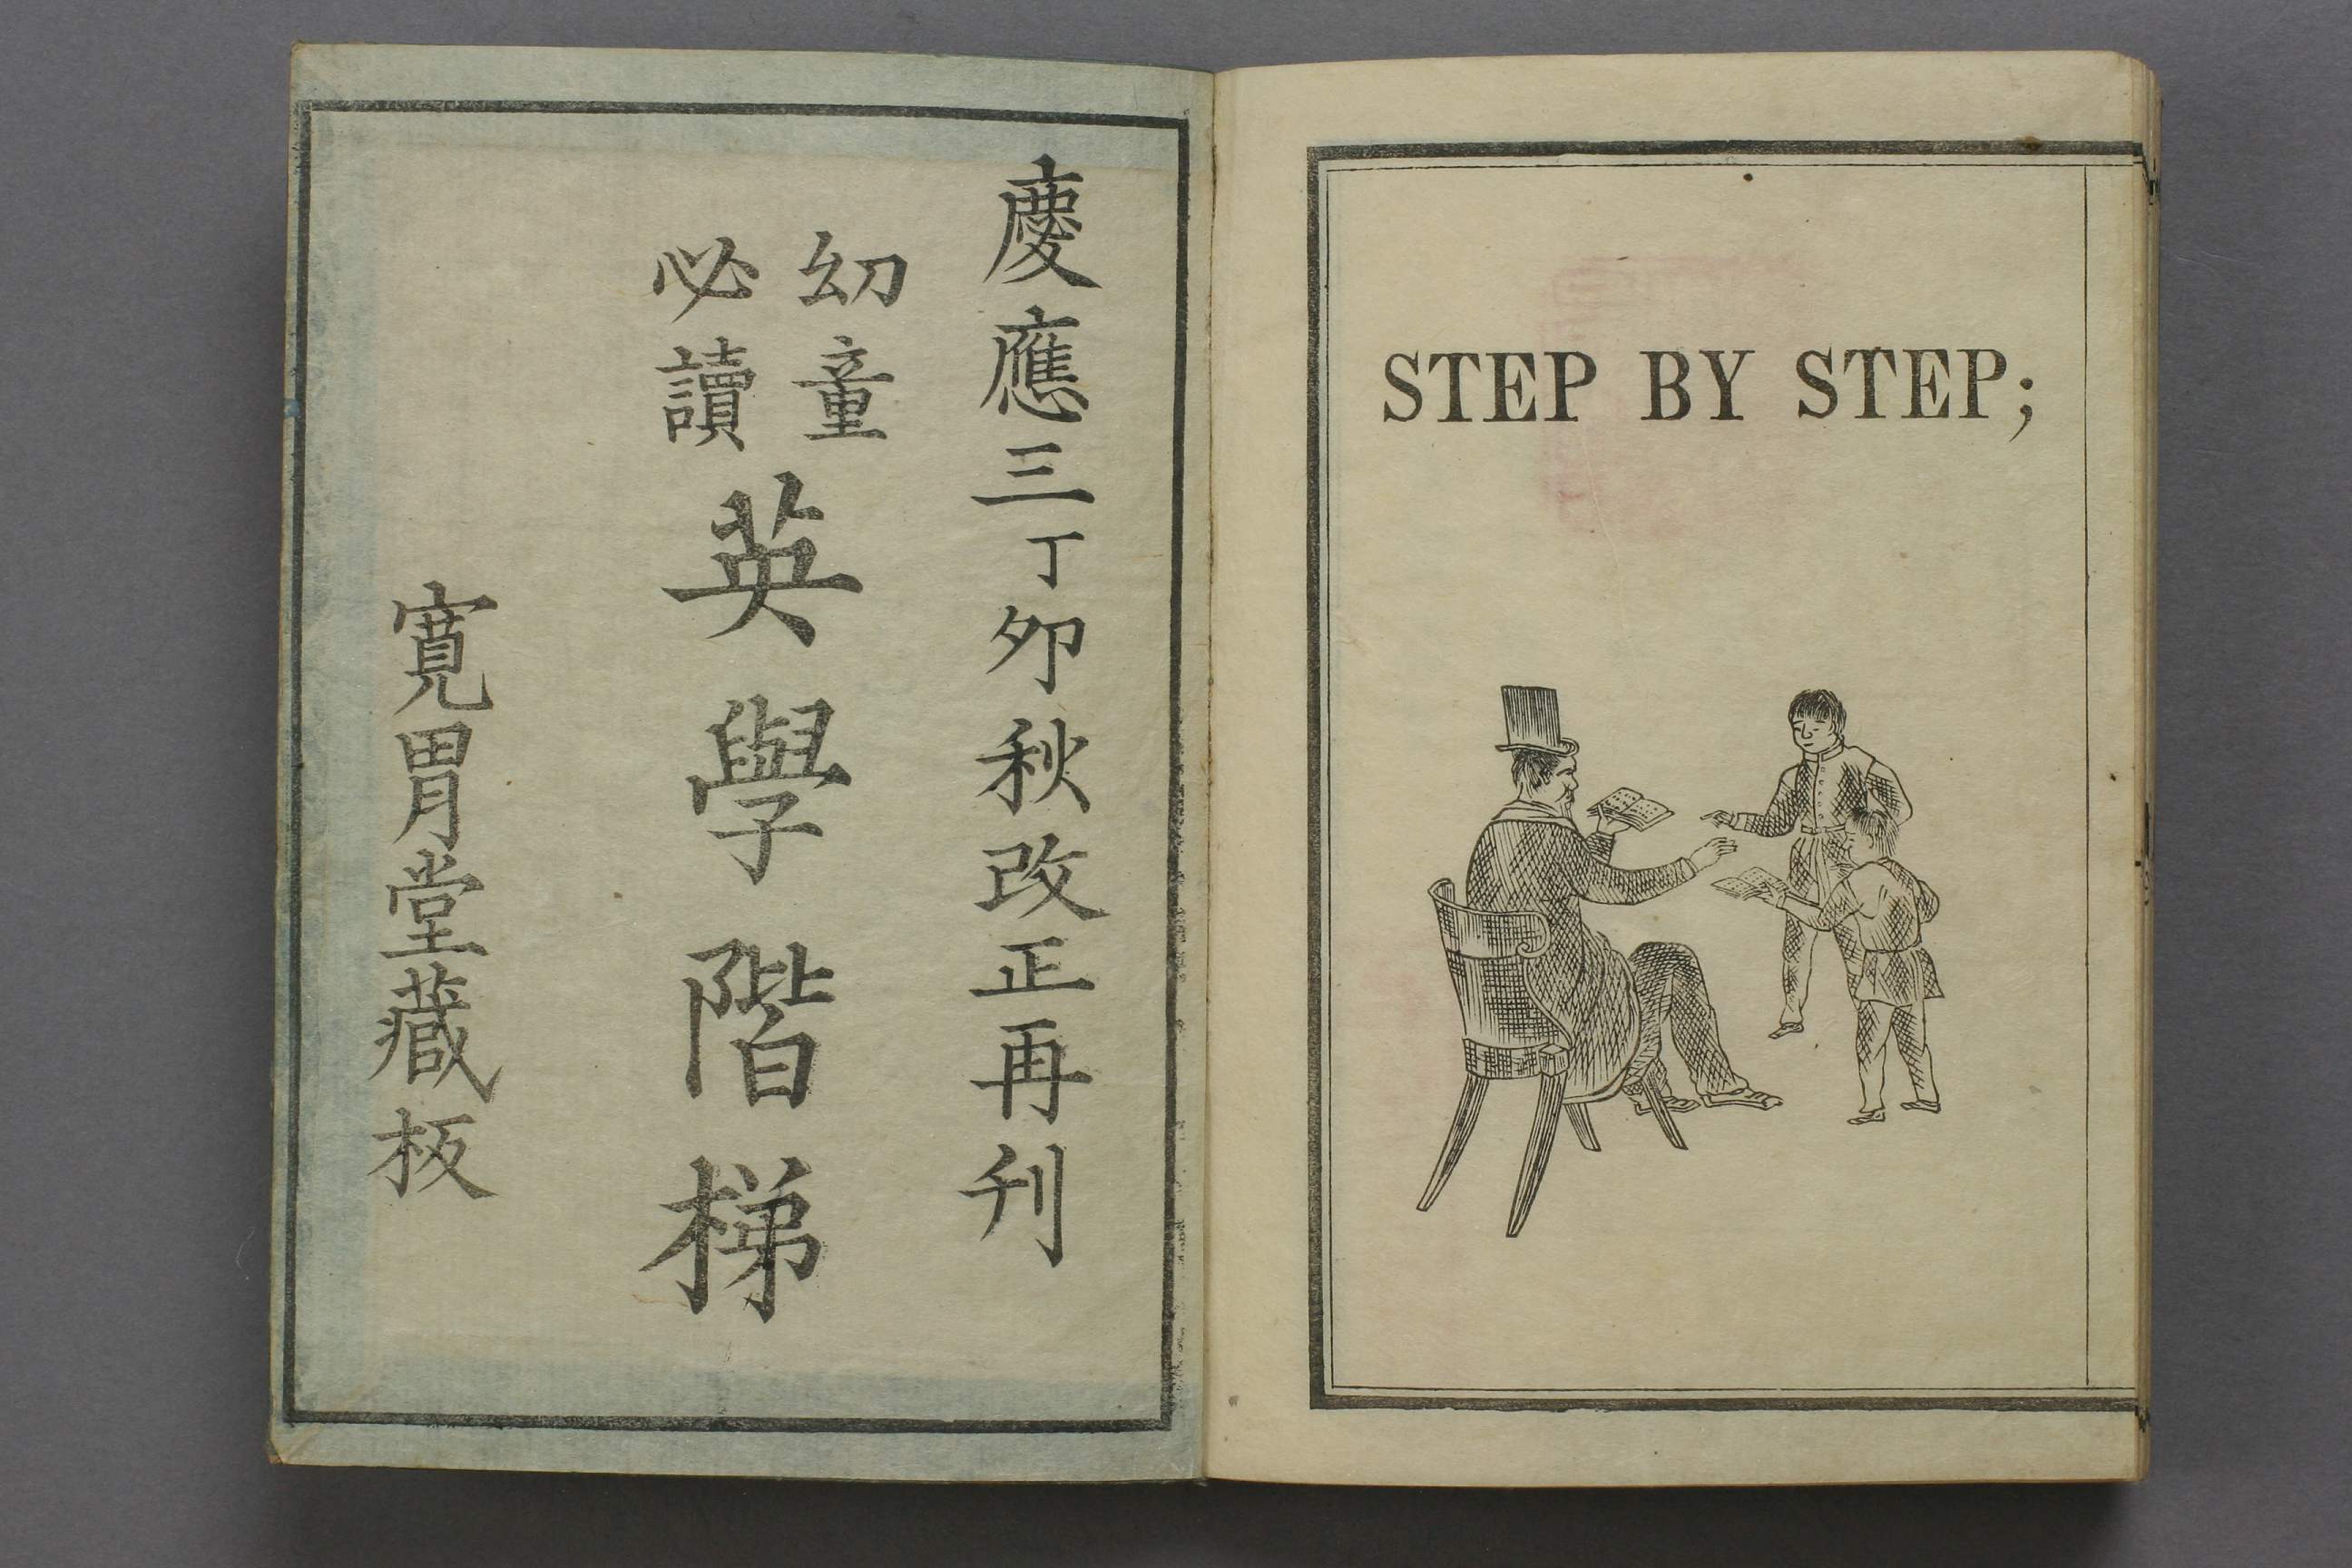 慶應三丁卯秋改正再刋
幼童
必讀
英學階梯
寛胃堂藏板
STEP BY STEP;